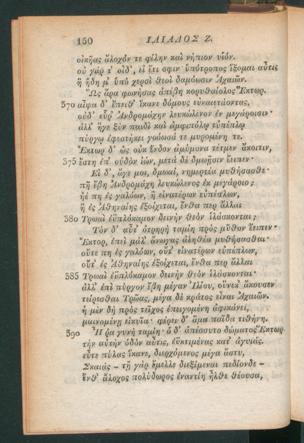 150 ΙΛΙΑΔΟΣ Ζ.
οἰκῆας ἄλοχόν τε φίλην καὶ νήπιον υἱόν.
οὐ γάρ τ' οἶδ', εἰ ἔτι σφιν ὑπότροπος ἵξομαι αὖτις
ἢ ἤδη μ' ὑπὸ χερσὶ θεοὶ δαμόωσιν Ἀχαιῶν.
Ὣς ἄρα φωνήσας ἀπέβη κορυθαίολος Ἕκτωρ.
370 αἶψα δ' ἔπειθ' ἵκανε δόμους εὐναιετάοντας,
οὐδ' εὗρ' Ἀνδρομάχην λευκώλενον ἐν μεγάροισιν·
ἀλλ' ἥγε ξὺν παιδὶ καὶ ἀμφιπόλῳ εὐπέπλῳ
πύργῳ ἐφεστήκει γοόωσά τε μυρομένη τε.
Ἕκτωρ δ' ὡς οὐκ ἔνδον ἀμύμονα τέτμεν ἄκοιτιν,
375 ἔστη ἐπ' οὐδὸν ἰών, μετὰ δὲ δμωῇσιν ἔειπεν·
Εἰ δ', ἄγε μοι, δμωαί, νημερτέα μυθήσασθε·
πῆ ἔβη Ἀνδρομάχη λευκώλενος ἐκ μεγάροιο;
ἠέ πῃ ἐς γαλόων, ἢ εἰνατέρων εὐπέπλων,
ἢ ἐς Ἀθηναίης ἐξοίχεται, ἔνθα περ ἄλλαι
380 Τρωαὶ ἐϋπλόκαμοι δεινὴν θεὸν ἱλάσκονται;
Τὸν δ' αὖτ' ὀτρηρὴ ταμίη πρὸς μῦθον ἔειπεν·
Ἕκτορ, ἐπεὶ μάλ' ἄνωγας ἀληθέα μυθήσασθαι·
οὔτε πῃ ἐς γαλόων, οὔτ' εἰνατέρων εὐπέπλων,
οὔτ' ἐς Ἀθηναίης ἐξοίχεται, ἔνθα περ ἄλλαι
385 Τρωαὶ ἐϋπλόκαμοι δεινὴν θεὸν ἱλάσκονται·
ἀλλ' ἐπὶ πύργον ἔβη μέγαν Ἰλίου, οὕνεκ' ἄκουσεν
τείρεσθαι Τρῶας, μέγα δὲ κράτος εἶναι Ἀχαιῶν.
ἡ μὲν δὴ πρὸς τεῖχος ἐπειγομένη ἀφικάνει,
μαινομένῃ εἰκυῖα· φέρει δ' ἅμα παῖδα τιθήνη.
390 Ἦ ῥα γυνὴ ταμίη· ὁ δ' ἀπέσσυτο δώματος Ἕκτωρ
τὴν αὐτὴν ὁδὸν αὖτις, ἐϋκτιμένας κατ' ἀγυιάς.
εὖτε πύλας ἵκανε, διερχόμενος μέγα ἄστυ,
Σκαιάς – τῇ γὰρ ἔμελλε διεξίμεναι πεδίονδε –
ἔνθ' ἄλοχος πολύδωρος ἐναντίη ἦλθε θέουσα,